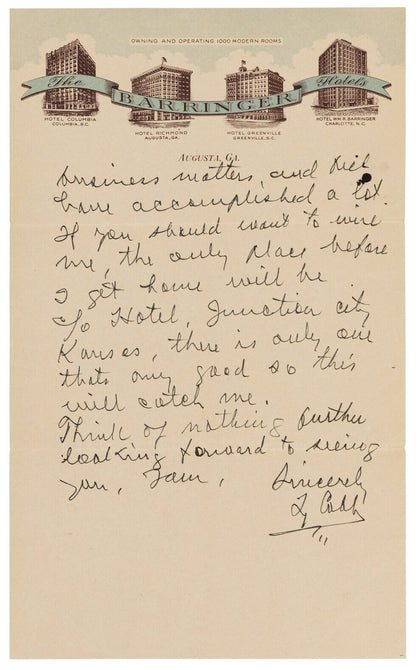 OWNING AND OPERATING 1000 MODERN ROOMS
The BARRINGER Hotels
HOTEL COLUMBIA
COLUMBIA, S.C.
HOTEL RICHMOND
AUGUSTA, GA.
HOTEL GREENVILLE
GREENVILLE, S.C.
HOTEL WM R. BARRINGER
CHARLOTTE, N.C.
AUGUSTA, GA.
business matters, and
have accomplished a lot.
If you should want to wire
me, the only place before
I get home will be
c/o Hotel, Junction city
Kansas, there is only one
thats any good so this
will catch me.
Think of nothing further
looking forward to seeing
you, I am, Sincerely
Ty Cobb